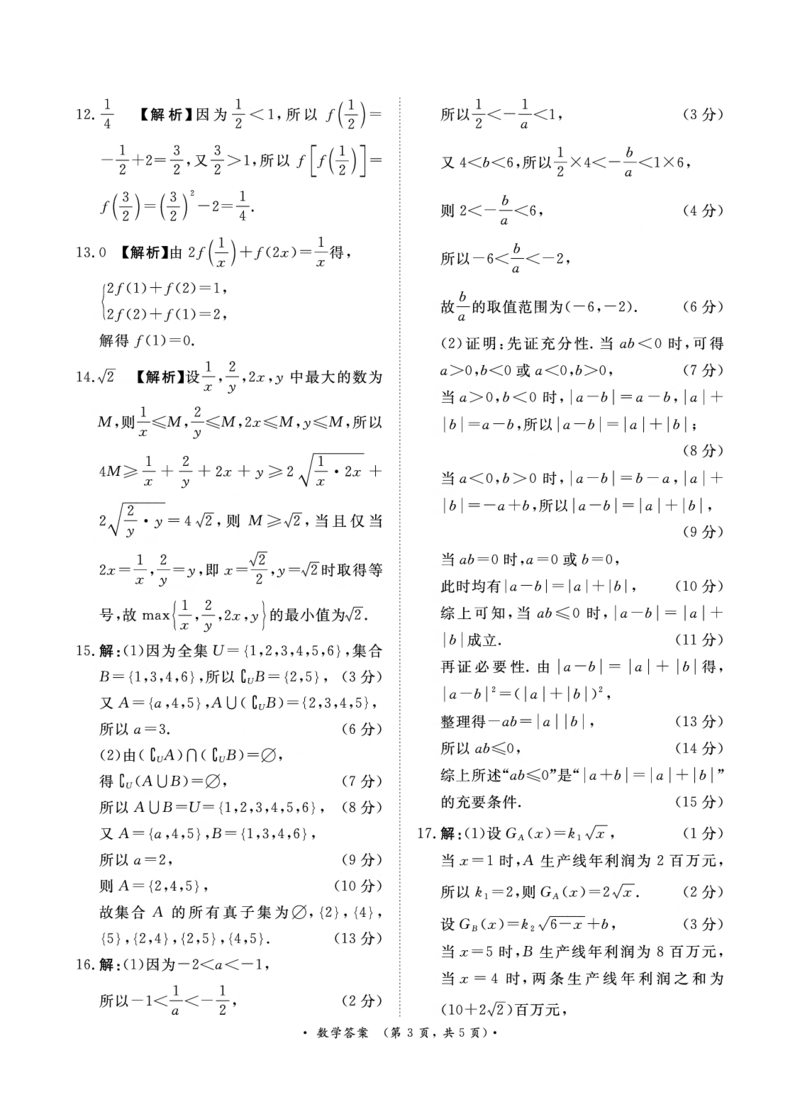 12. 1/4 【解析】因为 1/2 <1,所以 f(1/2)=
-1/2+2=3/2,又 3/2>1,所以 f[f(1/2)]=
f(3/2)=(3/2)²-2=1/4.
13.0 【解析】由 2f(1/x)+f(2x)=1/x 得,
{2f(1)+f(2)=1,
2f(2)+f(1)=2,
解得 f(1)=0.
14.√2 【解析】设 1/x,2/y,2x,y 中最大的数为
M,则1/x≤M,2/y≤M,2x≤M,y≤M,所以
4M≥1/x+2/y+2x+y≥2√(1/x·2x)+
2√(2/y·y)=4√2,则 M≥√2,当且仅当
2x=1/x,2/y=y,即 x=√2/2,y=√2时取得等
号,故 max{1/x,2/y,2x,y}的最小值为√2.
15.解:(1)因为全集U={1,2,3,4,5,6},集合
B={1,3,4,6},所以∁UB={2,5},(3分)
又A={a,4,5},A∪(∁UB)={2,3,4,5},
所以a=3. (6分)
(2)由(∁UA)∩(∁UB)=∅,
得∁U(A∪B)=∅, (7分)
所以A∪B=U={1,2,3,4,5,6}, (8分)
又A={a,4,5},B={1,3,4,6},
所以a=2, (9分)
则A={2,4,5}, (10分)
故集合 A 的所有真子集为∅,{2},{4},
{5},{2,4},{2,5},{4,5}. (13分)
16.解:(1)因为-2<a<-1,
所以-1<1/a<-1/2, (2分)
所以1/2<-1/a<1, (3分)
又4<b<6,所以1/2×4<-b/a<1×6,
则2<-b/a<6, (4分)
所以-6<b/a<-2,
故b/a的取值范围为(-6,-2). (6分)
(2)证明:先证充分性.当 ab<0 时,可得
a>0,b<0或a<0,b>0, (7分)
当a>0,b<0 时,|a-b|=a-b,|a|+
|b|=a-b,所以|a-b|=|a|+|b|;
(8分)
当a<0,b>0 时,|a-b|=b-a,|a|+
|b|=-a+b,所以|a-b|=|a|+|b|,
(9分)
当ab=0时,a=0或b=0,
此时均有|a-b|=|a|+|b|, (10分)
综上可知,当 ab≤0 时,|a-b|=|a|+
|b|成立. (11分)
再证必要性.由 |a-b|=|a|+|b|得,
|a-b|²=(|a|+|b|)²,
整理得-ab=|a||b|, (13分)
所以ab≤0, (14分)
综上所述“ab≤0”是“|a+b|=|a|+|b|”
的充要条件. (15分)
17.解:(1)设G_A(x)=k₁√x, (1分)
当x=1时,A 生产线年利润为 2 百万元,
所以k₁=2,则G_A(x)=2√x. (2分)
设G_B(x)=k₂√(6-x)+b, (3分)
当x=5时,B 生产线年利润为 8 百万元,
当 x=4 时,两条生产线年利润之和为
(10+2√2)百万元,
·数学答案 (第3页,共5页)·